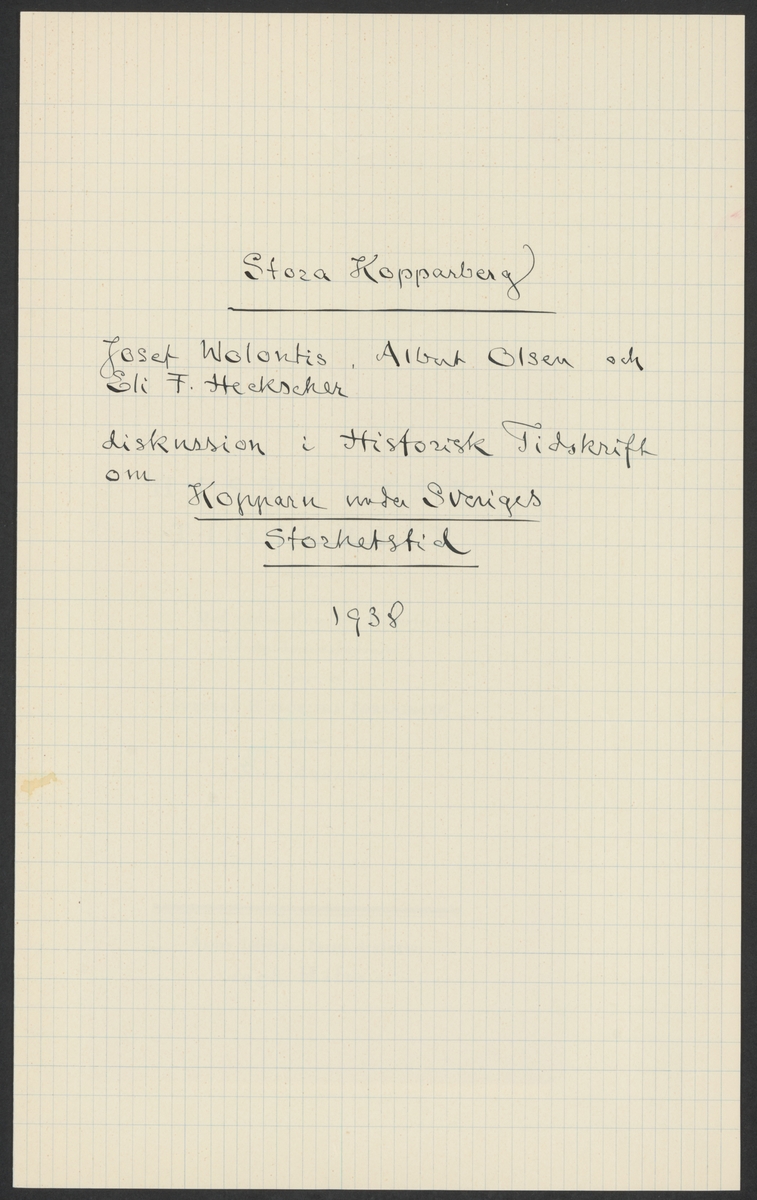 Stora Kopparberg
Josef Wolontis, Albert Olsen och
Eli F. Heckscher
diskussion i Historisk Tidskrift
om
Kopparn under Sveriges
Storhetstid
1938